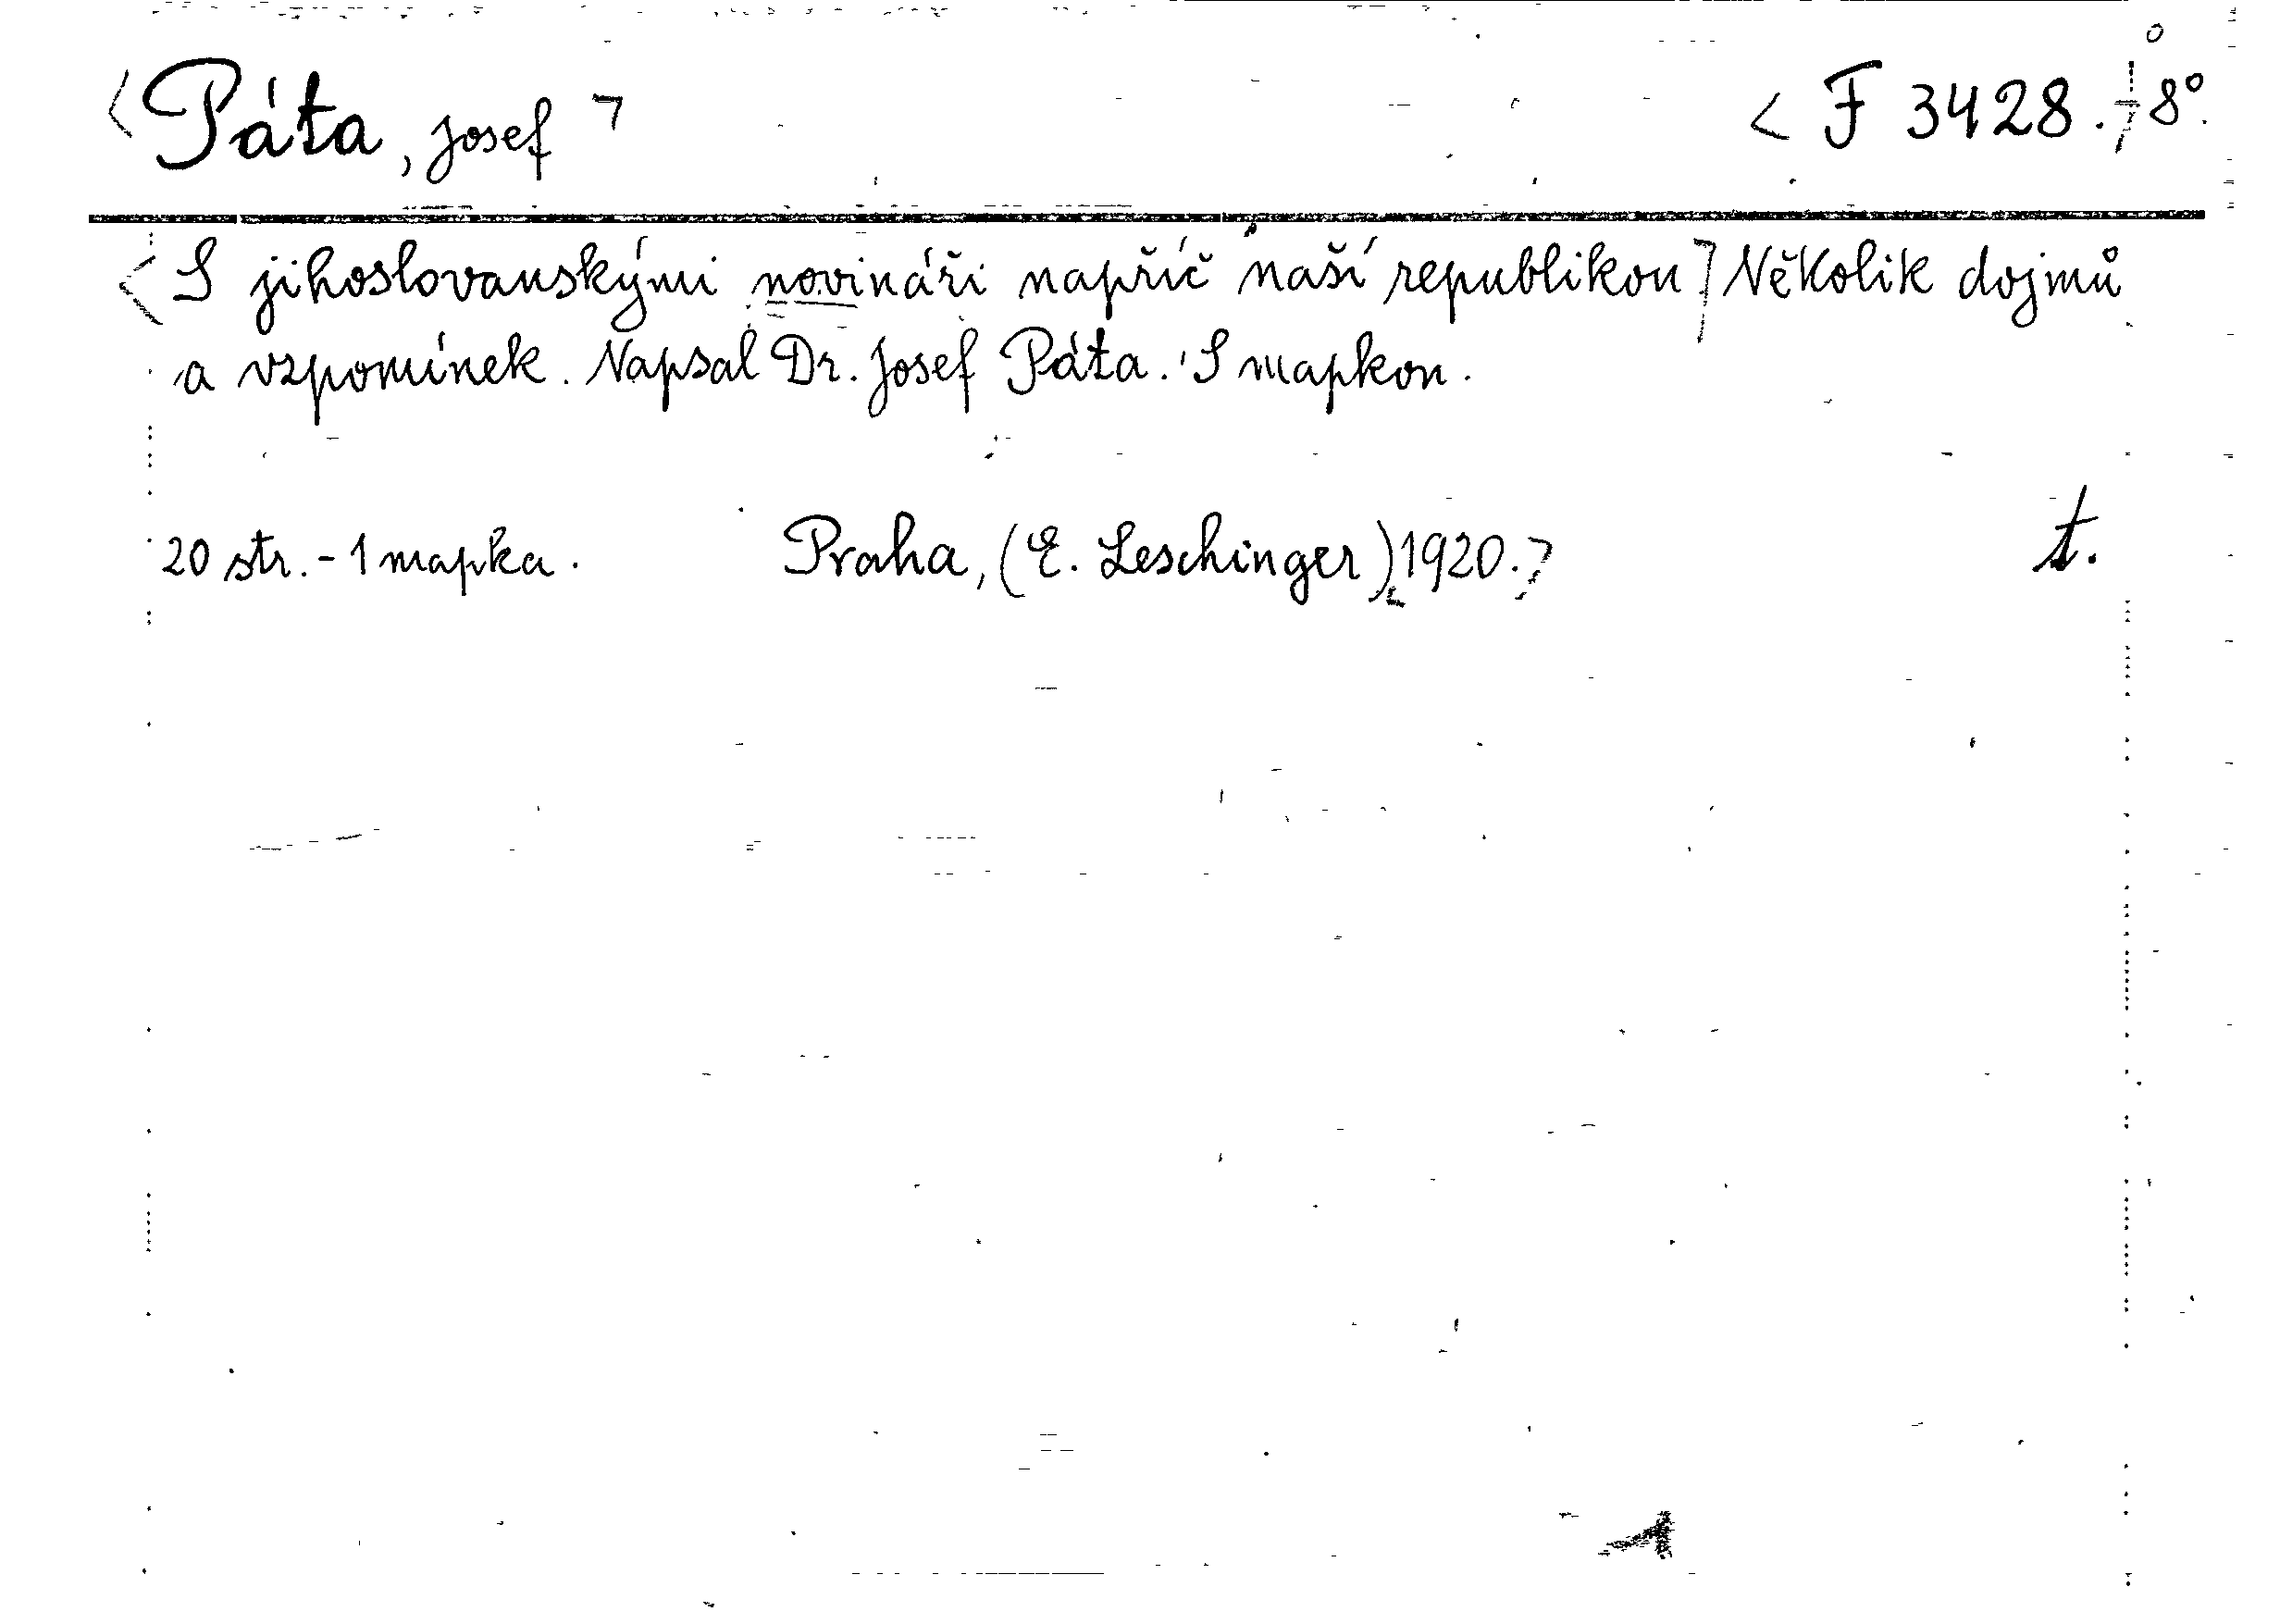 <Páta, Josef > < F 3428. 8°.
<S jihoslovanskými novináři napříč naší republikou] Několik dojmů
a vzpomínek. Napsal Dr. Josef Páta. S mapkou.
20 str. - 1 mapka. Praha, (E. Leschinger) 1920.> t.